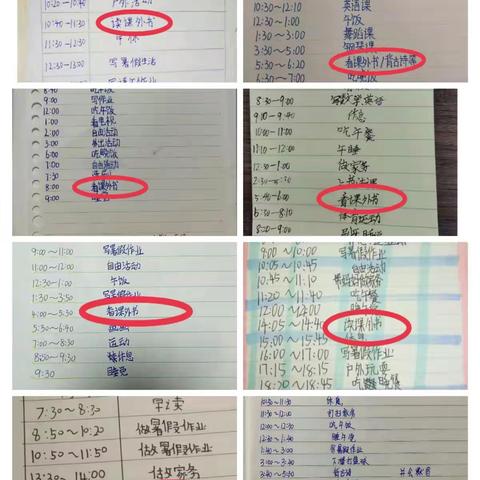 10:20~10:40 户外活动
10:40~11:30 读课外书
11:30~12:30 午休
12:30~13:00 写暑假生活
10:30~12:10 英语课
12:30~1:00 午饭
1:30~3:00 舞蹈课
3:30~5:00 钢琴课
5:30~6:20 看课外书/背古诗
8:40 吃早饭
9:00 写作业
12:00 吃午饭
1:00 看电视
2:00 自由活动
3:00
6:00 吃晚饭
7:00 自由活动
7:30
8:00 看课外书
9:00 睡觉
8:30~9:00
9:10~9:40 休息
10:00~11:00 吃午餐
11:10~12:00 午睡
12:30~2:00 做家务
5:40~6:00 看课外书
6:30~8:10 体育运动
8:20~9:00
9:00~11:00 写暑假作业
11:00~12:00 自由活动
12:30~1:00 午饭
1:30~3:50 写暑假作业
4:00~5:30 看课外书
5:30~6:40
7:00~8:20 运动
8:50~9:30 休息
9:30 睡觉
9:00~10:00 写暑假作业
10:05~10:45 自由活动
10:45~11:10
11:20~11:40 吃午餐
12:00~14:00
14:05~14:40 读课外书
15:00~15:45 休息
16:00~17:00 写暑假作业
17:15~18:15 户外玩耍
18:20~18:45 吃晚餐
7:30~8:30 早读
8:50~10:20 做暑假作业
10:50~11:50 做暑假作业
13:30~14:00 做家务
10:30~11:30 休息
11:00~11:30
12:00~12:30 吃午饭
12:30~1:30 睡午觉
1:40~3:00 写暑假作业
3:00~3:40
3:40~5:00 背古诗